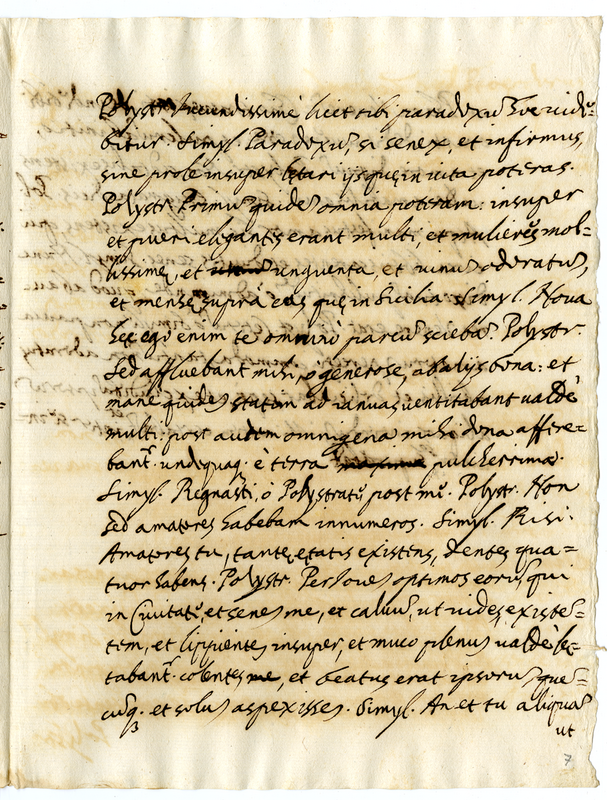 Polystr. Iucundissimè licet tibi paradoxu͂ hoc uide=
bitur. Simyl. Paradoxu͂, si senex, et infirmus,
sine prole insuper lętari ijs quę in uita poteras.
Polystr. Primu͂ quide͂ omnia poteram: insuper
et pueri elegantes erant multi, et mulieres mol=
lissimę, et unguenta, et uinu͂ odoratu͂,
et mensę supra eas quę in Sicilia. Simyl. Noua
hęc ego enim te omninò parcu͂ scieba͂. Polystr.
Sed affluebant mihi, ò generose, ab alijs bona: et
manè quide͂ statim ad ianuas uentitabant ualdè
multi: post autem omnigena mihi dona affere=
bant.r undequaq. è terra pulcherrima.
Simyl. Regnasti, ò Polystrate, post me. Polystr. Non
sed amatores habebam innumeros. Simyl. Risi.
Amatores tu, tantę ętatis existens, dentes qua=
tuor habens. Polystr. Per Ioue͂ optimos eoru͂, qui
in Ciuitate, et sene͂ me, et caluu͂, ut uides, existe͂=
tem, et lippiente͂ insuper, et muco plenu͂ ualdè lę=
tabant.r colentes, et beatus erat ipsoru͂ que͂=
cu͂q. et solu͂ aspexisse͂. Simyl. An et tu aliqua͂
ut
7